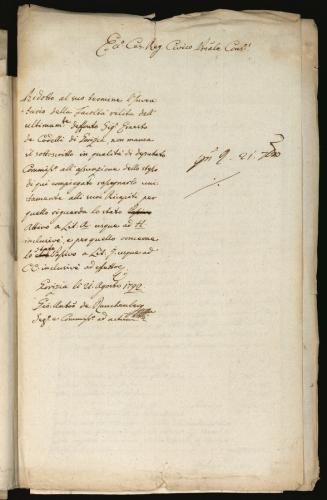 Ecc.o Ces. Reg. Civico Prale Cons.o
Ridotto al suo termine l'Inven-
tario della Facoltà relitta dell'
ultimam.te defonto Sig.r
de Corelli di Gorizia, non manca
il sottoscritto in qualità di deputato
Commiss.o all'assunzione dello stesso
di qui compiegato rassegnarlo uni-
tamente alli suoi Requisiti per
quello riguarda lo stato
Attivo a Lit. A usque ad H
inclusivè, e per quello concerne
lo stato Passivo a Lit. J. usque ad
CC inclusivè ad effectum
Gorizia li 21. Agosto 1792
Gio. Antõ de
Seg.o e Commiss.o ad actum
21.